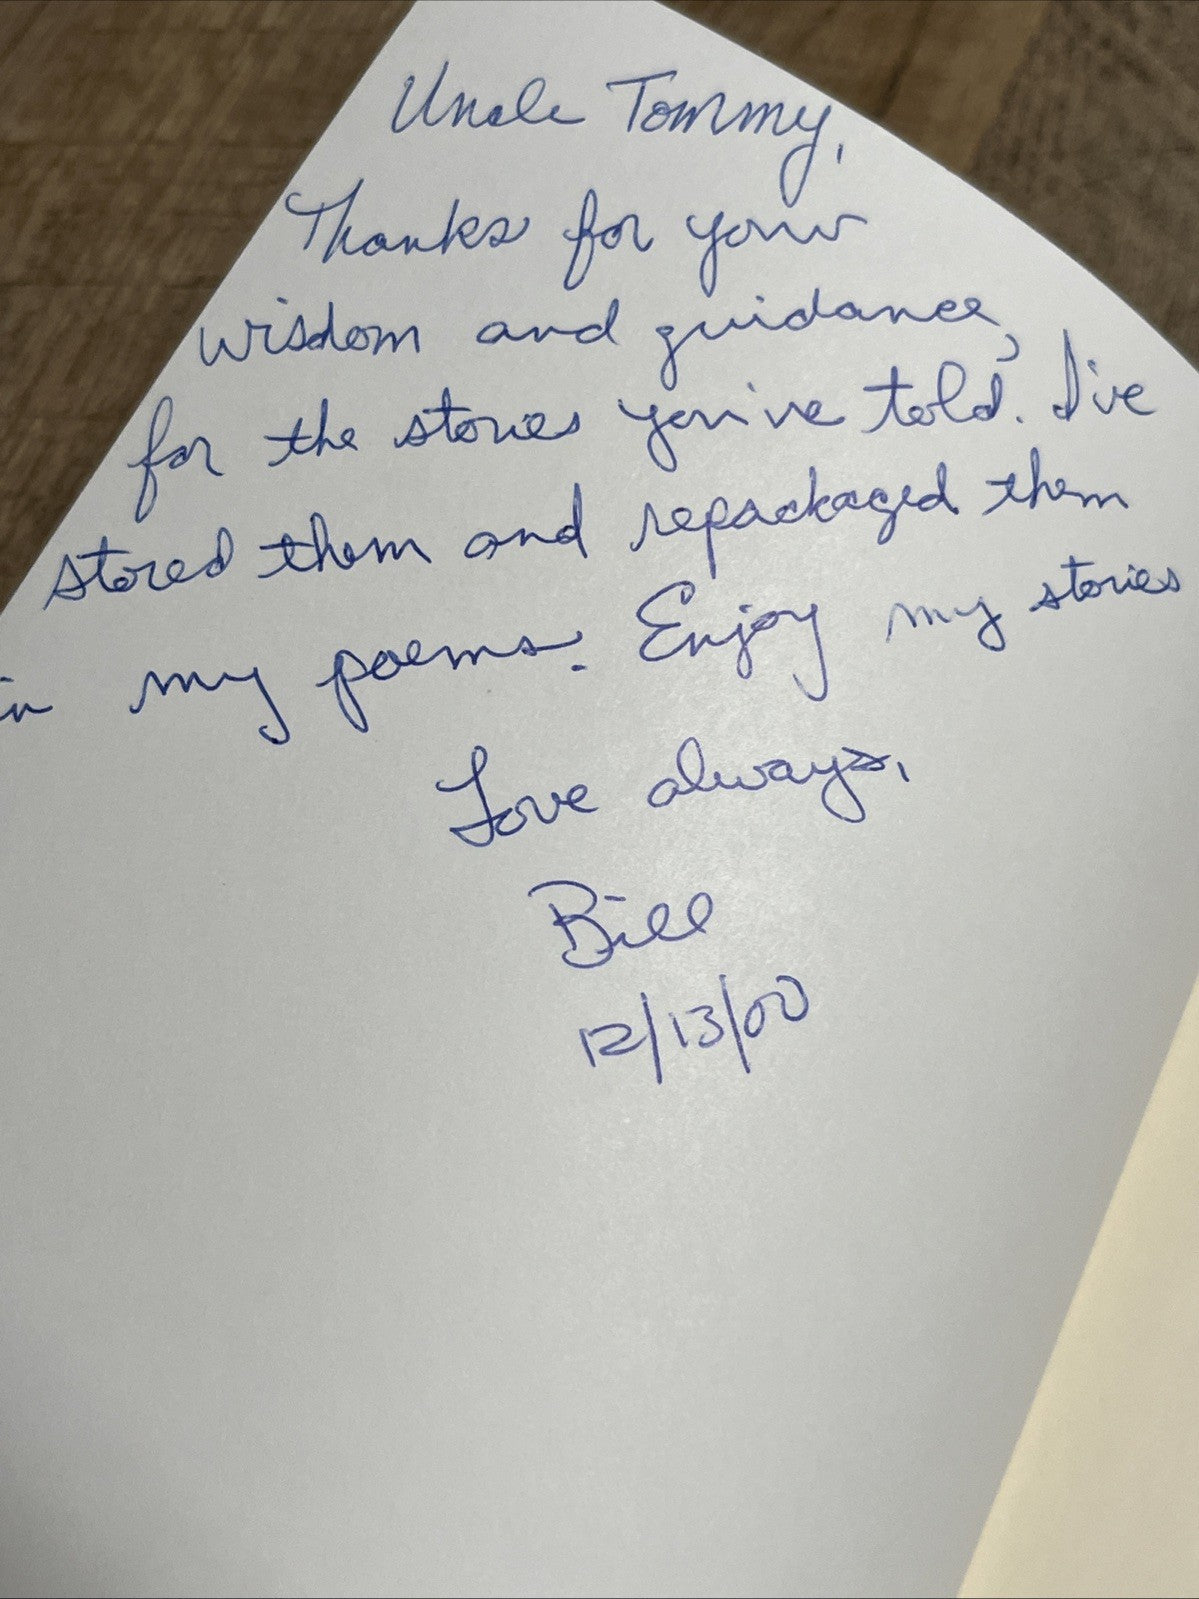 Uncle Tommy,
Thanks for your
wisdom and guidance,
for the stories you've told. I've
stored them and repackaged them
in my poems. Enjoy my stories
Love always,
Bill
12/13/00